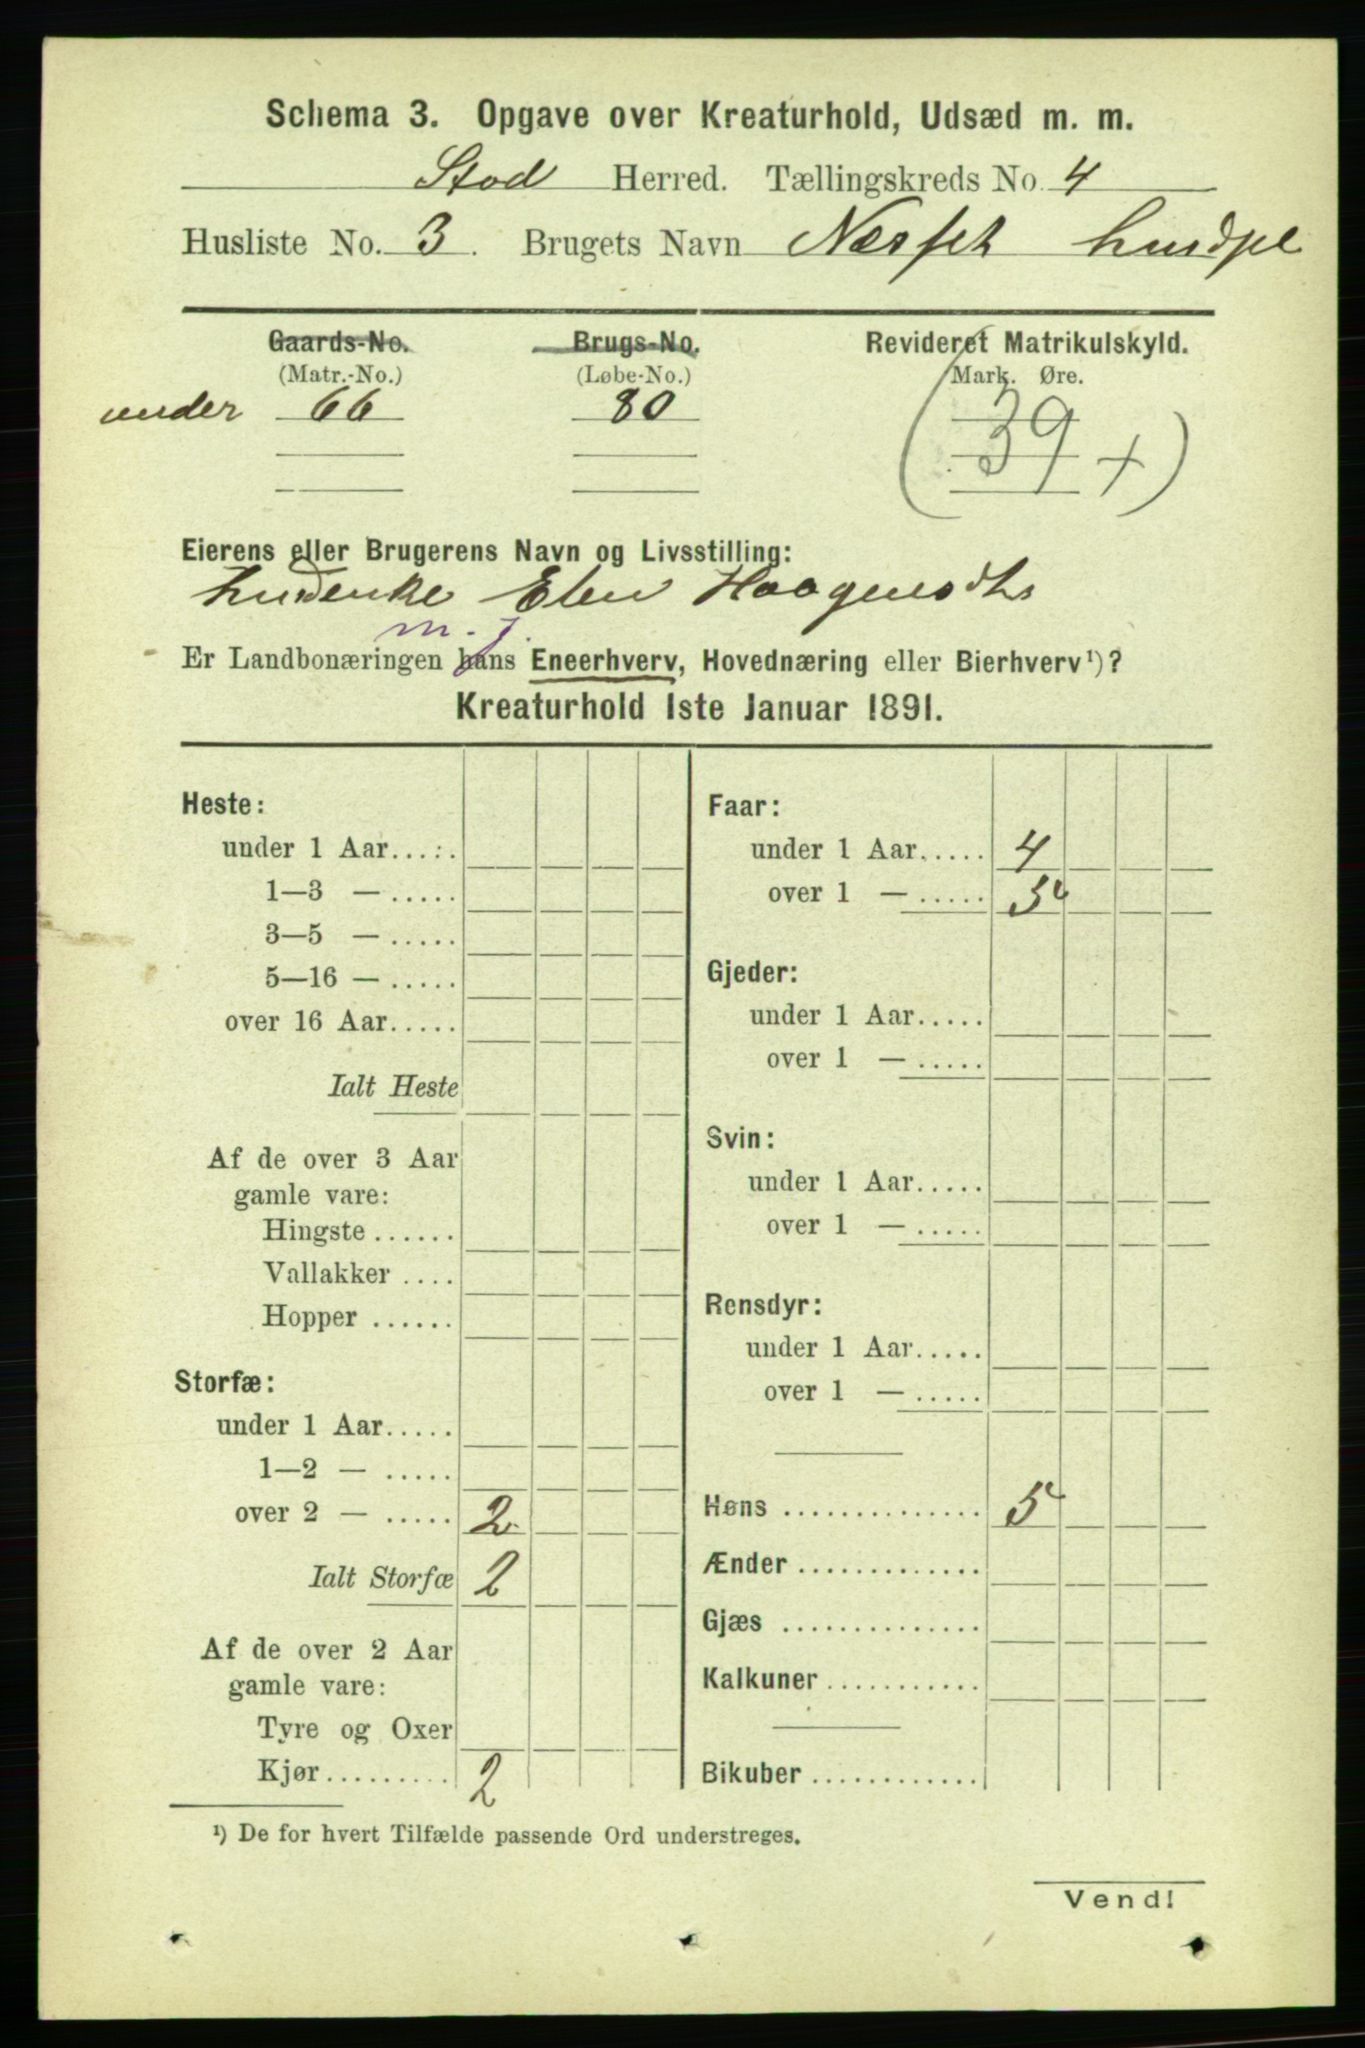 Schema 3. Opgave over Kreaturhold, Udsæd m. m.
Stod Herred. Tællingskreds No. 4
Husliste No. 3. Brugets Navn Næsset husdpl
Gaards-No. Brugs-No. Revideret Matrikulskyld.
(Matr.-No.) (Løbe-No.) Mark. Øre.
under 66 80
(39 +)
Eierens eller Brugerens Navn og Livsstilling:
Elen Haagensdtr
m. j.
Er Landbonæringen hans Eneerhverv, Hovednæring eller Bierhverv ¹)?
Kreaturhold 1ste Januar 1891.
Heste:
under 1 Aar.....
1—3 — .....
3—5 — .....
5—16 — .....
over 16 Aar.....
Ialt Heste
Af de over 3 Aar
gamle vare:
Hingste ......
Vallakker ....
Hopper ......
Storfæ:
under 1 Aar.....
1—2 — .....
over 2 — ..... 2
Ialt Storfæ 2
Af de over 2 Aar
gamle vare:
Tyre og Oxer
Kjør......... 2
Faar:
under 1 Aar..... 4
over 1 — ..... 5
Gjeder:
under 1 Aar.....
over 1 — .....
Svin:
under 1 Aar.....
over 1 — .....
Rensdyr:
under 1 Aar.....
over 1 — .....
Høns .............. 5
Ænder .............
Gjæs ..............
Kalkuner ...........
Bikuber ............
¹) De for hvert Tilfælde passende Ord understreges.
Vend!